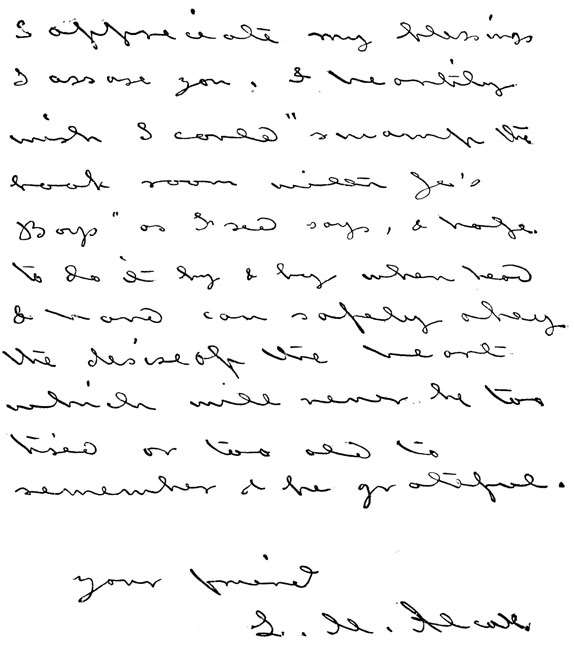 I appreciate my blessings
I assure you. I heartily
wish I could "swamp the
book room with Jo's
Boys" as Fred says, & hope
to do it by & by when head
& hand can safely obey
the desire of the heart
which will never be too
tired or too old to
remember & be grateful.
your friend
L. M. Alcott